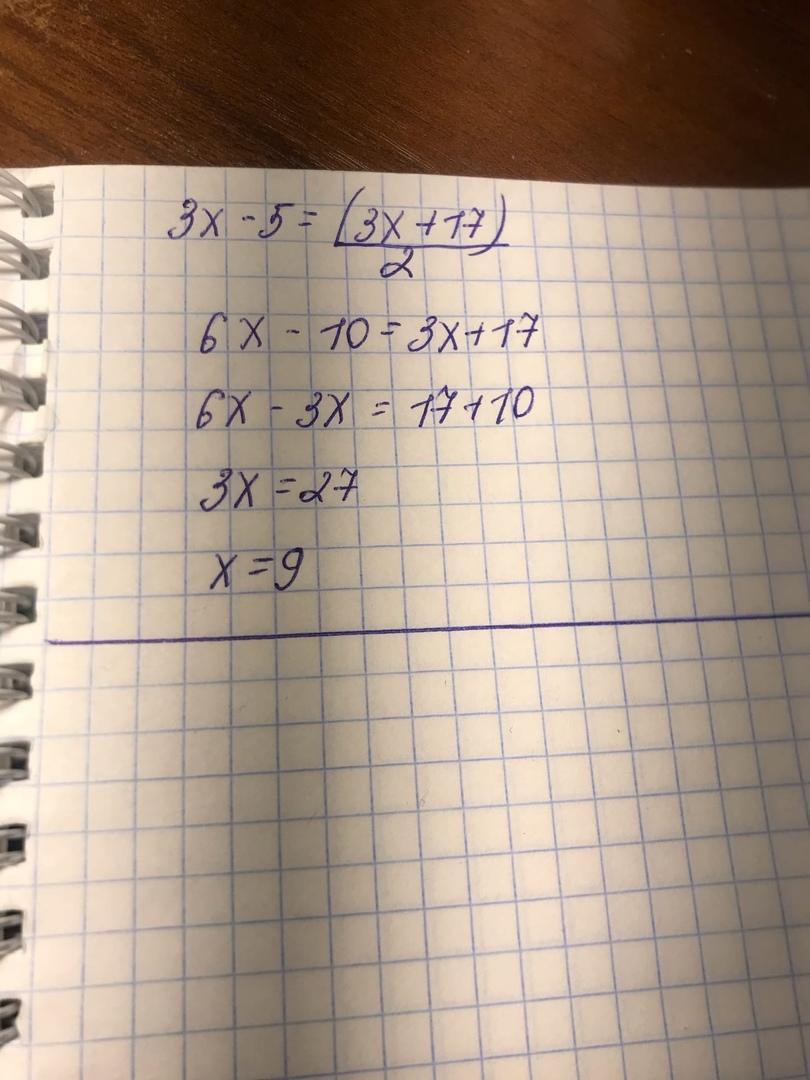 3x - 5 = (3x + 17)
2
6x - 10 = 3x + 17
6x - 3x = 17 + 10
3x = 27
x = 9